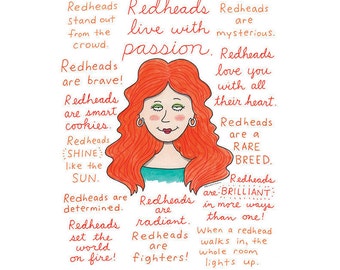 Redheads
stand out
from the
crowd.
Redheads
live with
passion.
Redheads
are
mysterious.
Redheads
are brave!
Redheads
love you
with all
their heart.
Redheads
are smart
cookies.
Redheads
are a
RARE
BREED.
Redheads
SHINE
like the
SUN.
Redheads
are BRILLIANT
in more ways
than one!
Redheads are
determined.
Redheads
are
radiant.
Redheads
set the
world
on fire!
Redheads
are
fighters!
When a redhead
walks in, the
whole room
lights up.